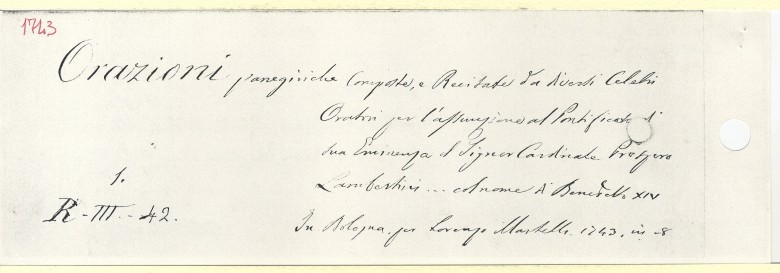 1743
Orazioni panegiriche Composte, e Recitate da diversi Celebri
Oratori per l'assunzione al Pontificato di
sua Eminenza il Signor Cardinale Prospero
Lambertini ... col nome di Benedetto XIV
In Bologna, per Lorenzo Martelli 1743, in -8
1.
R - III. - 42.